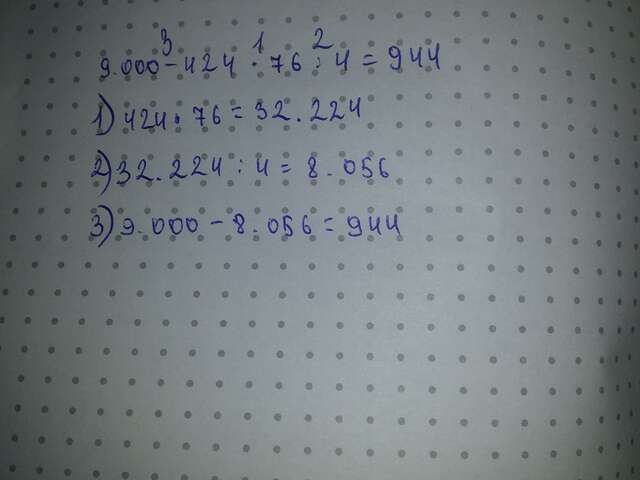 3 1 2
9.000-424 · 76 : 4 = 944
1) 424 · 76 = 32.224
2) 32.224 : 4 = 8.056
3) 9.000 - 8.056 = 944